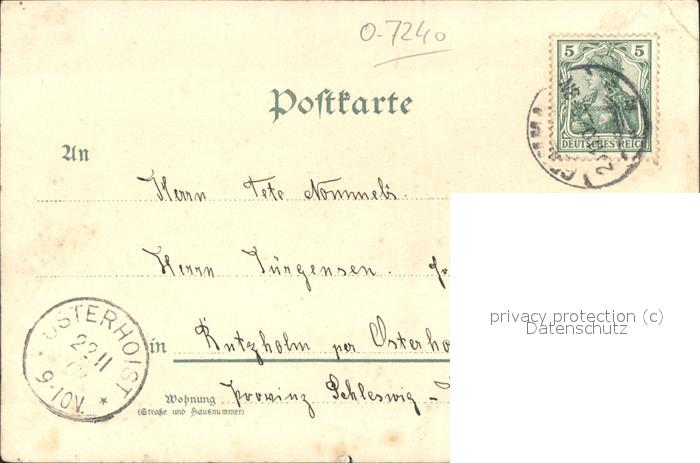 O-7240
5 5
DEUTSCHES REICH
GRIMMA
Postkarte
An
Herrn Tete Nommels.
Herrn Jürgensen.
in Rutzholm per Osterho
Provinz Schleswig-
Wohnung
(Straße und Hausnummer)
OSTERHOIST
22 11
9-10V.
privacy protection (c)
Datenschutz